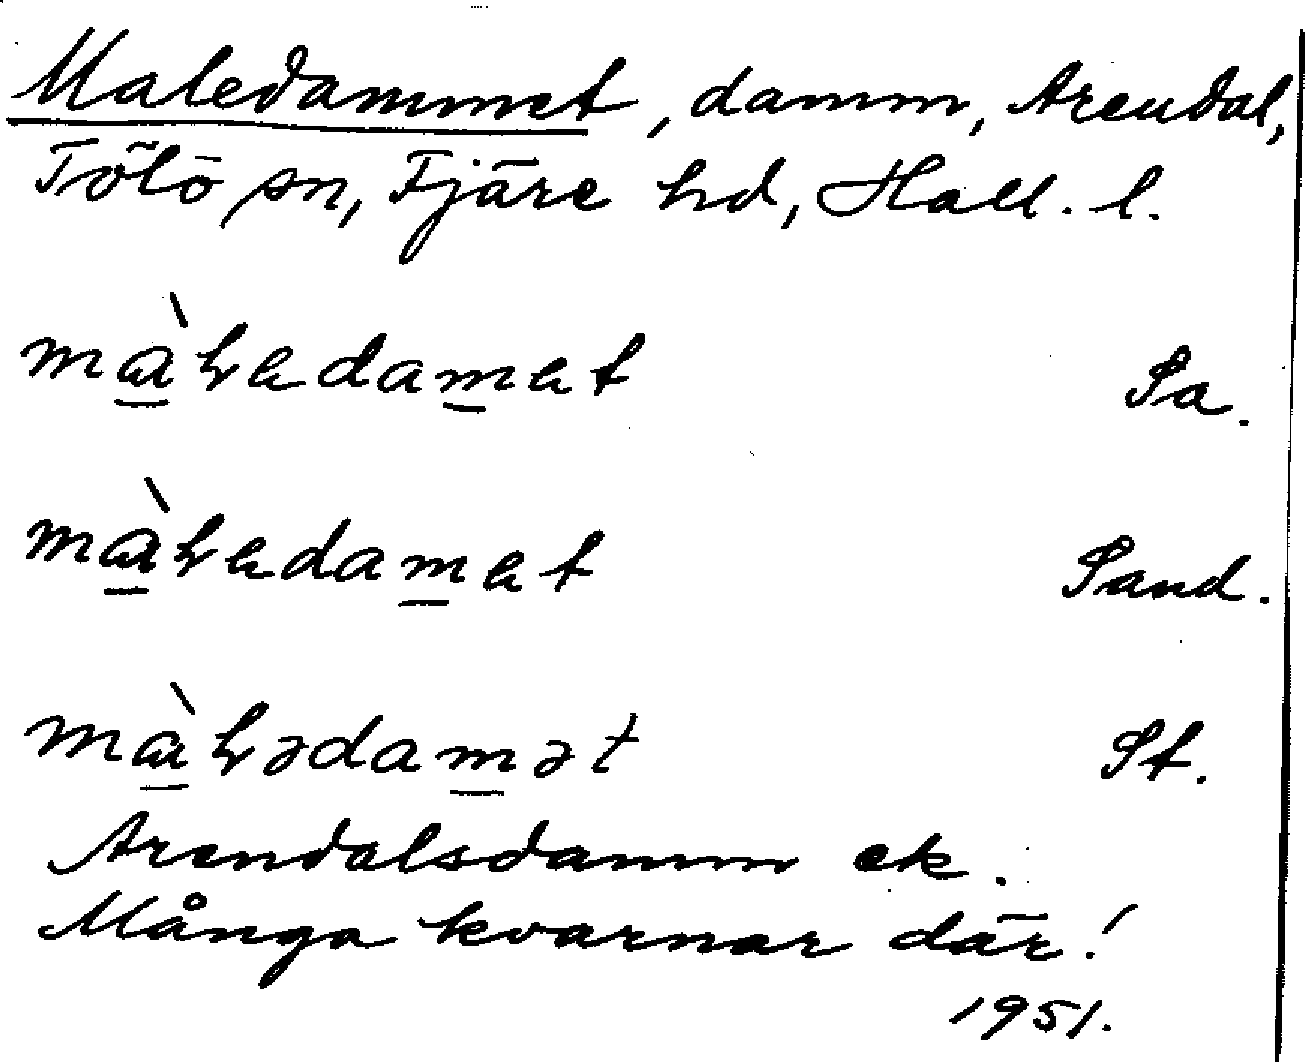 Maledammet, damm, Arendal,
Tölö sn, Fjäre hd, Hall. l.
mɑ̀ɫɐdamɐt Sa.
mɑ̀ɫɐdamɐt Sand.
mɑ̀ɫədamət St.
Arendalsdamm ek.
Många kvarnar där!
1951.